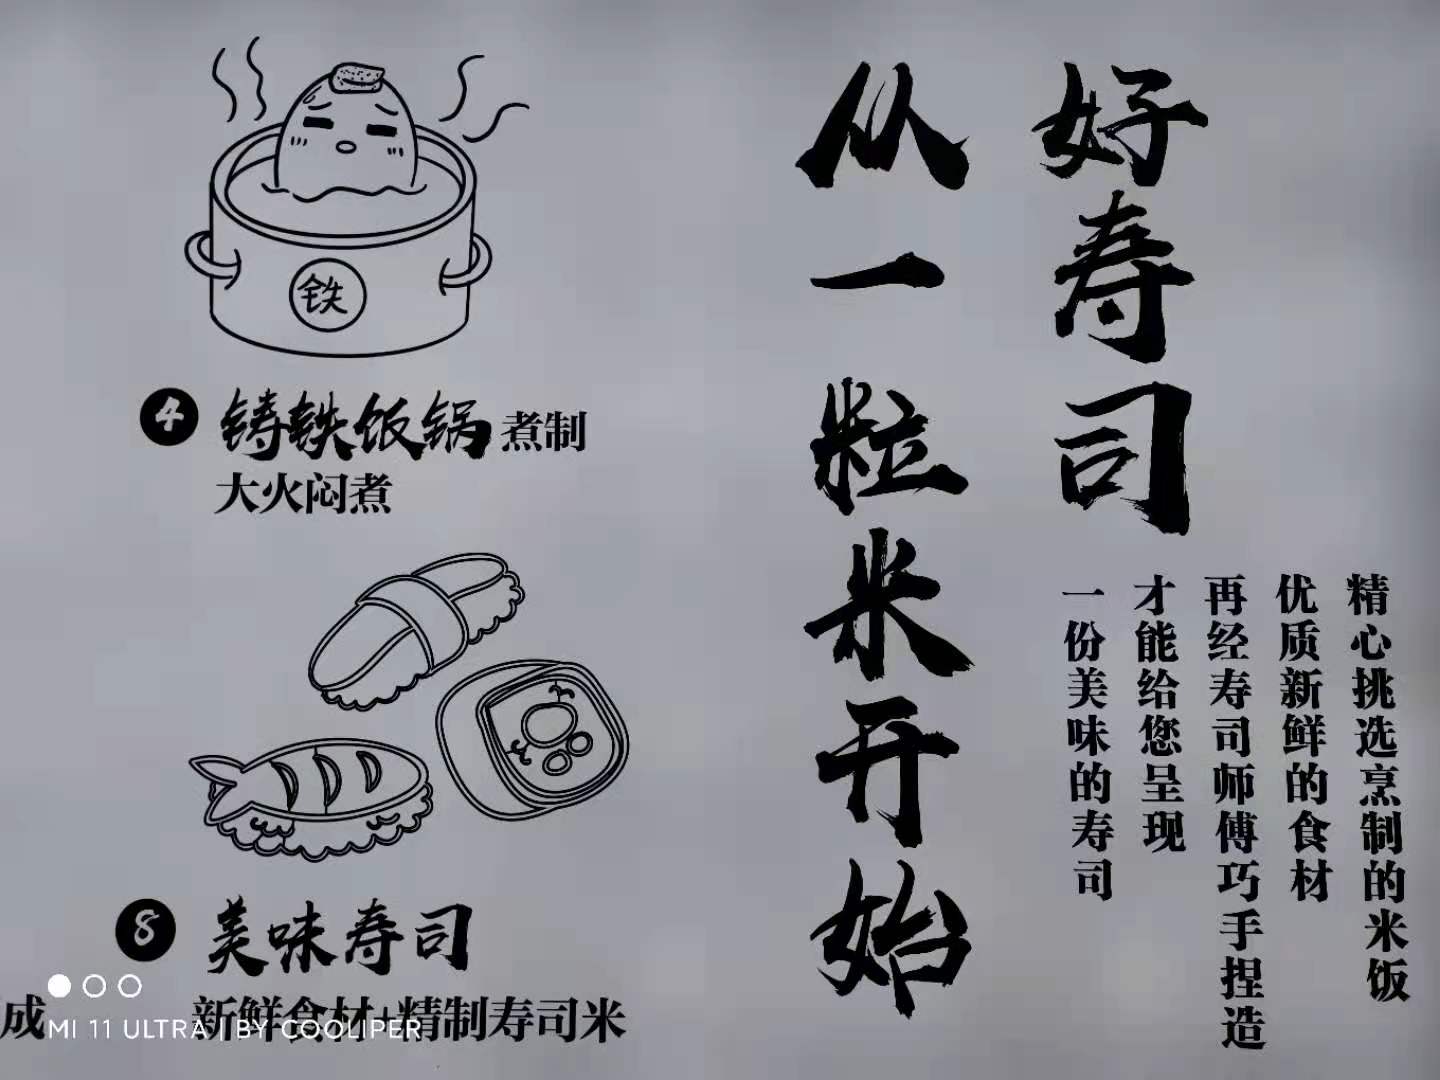 好寿司
从一粒米开始
精心挑选烹制的米饭
优质新鲜的食材
再经寿司师傅巧手捏造
才能给您呈现
一份美味的寿司
铁
4 铸铁饭锅煮制
大火闷煮
8 美味寿司
成
新鲜食材+精制寿司米
MI 11 ULTRA | BY COOLIPER